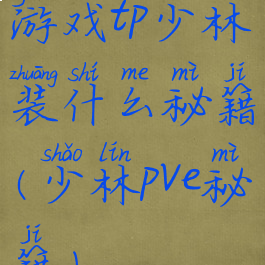 游戏tp少林
zhuāng shí me mì jí
装什么秘籍
shǎo lín mì
(少林pve秘
jí
籍)